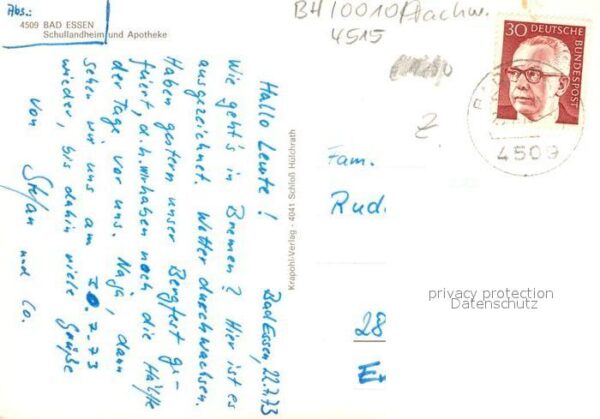 Abs.:
4509 BAD ESSEN
Schullandheim und Apotheke
Bad Essen, 22.7.73
Hallo Leute!
Wie geht's in Bremen? Hier ist es
ausgezeichnet. Wetter durchwachsen.
Haben gestern unser Bergfest ge-
feiert, d.h. wir haben noch die Hälfte
der Tage vor uns. Naja, dann
sehen wir uns am 30.7.73
wieder, bis dahin viele Grüße
von Stefan und Co.
Krapohl-Verlag · 4041 Schloß Hülchrath
BH/0010/Nachw.
4515
Z
30
DEUTSCHE BUNDESPOST
BAD
4509
Fam.
Rud.
28
privacy protection
Datenschutz